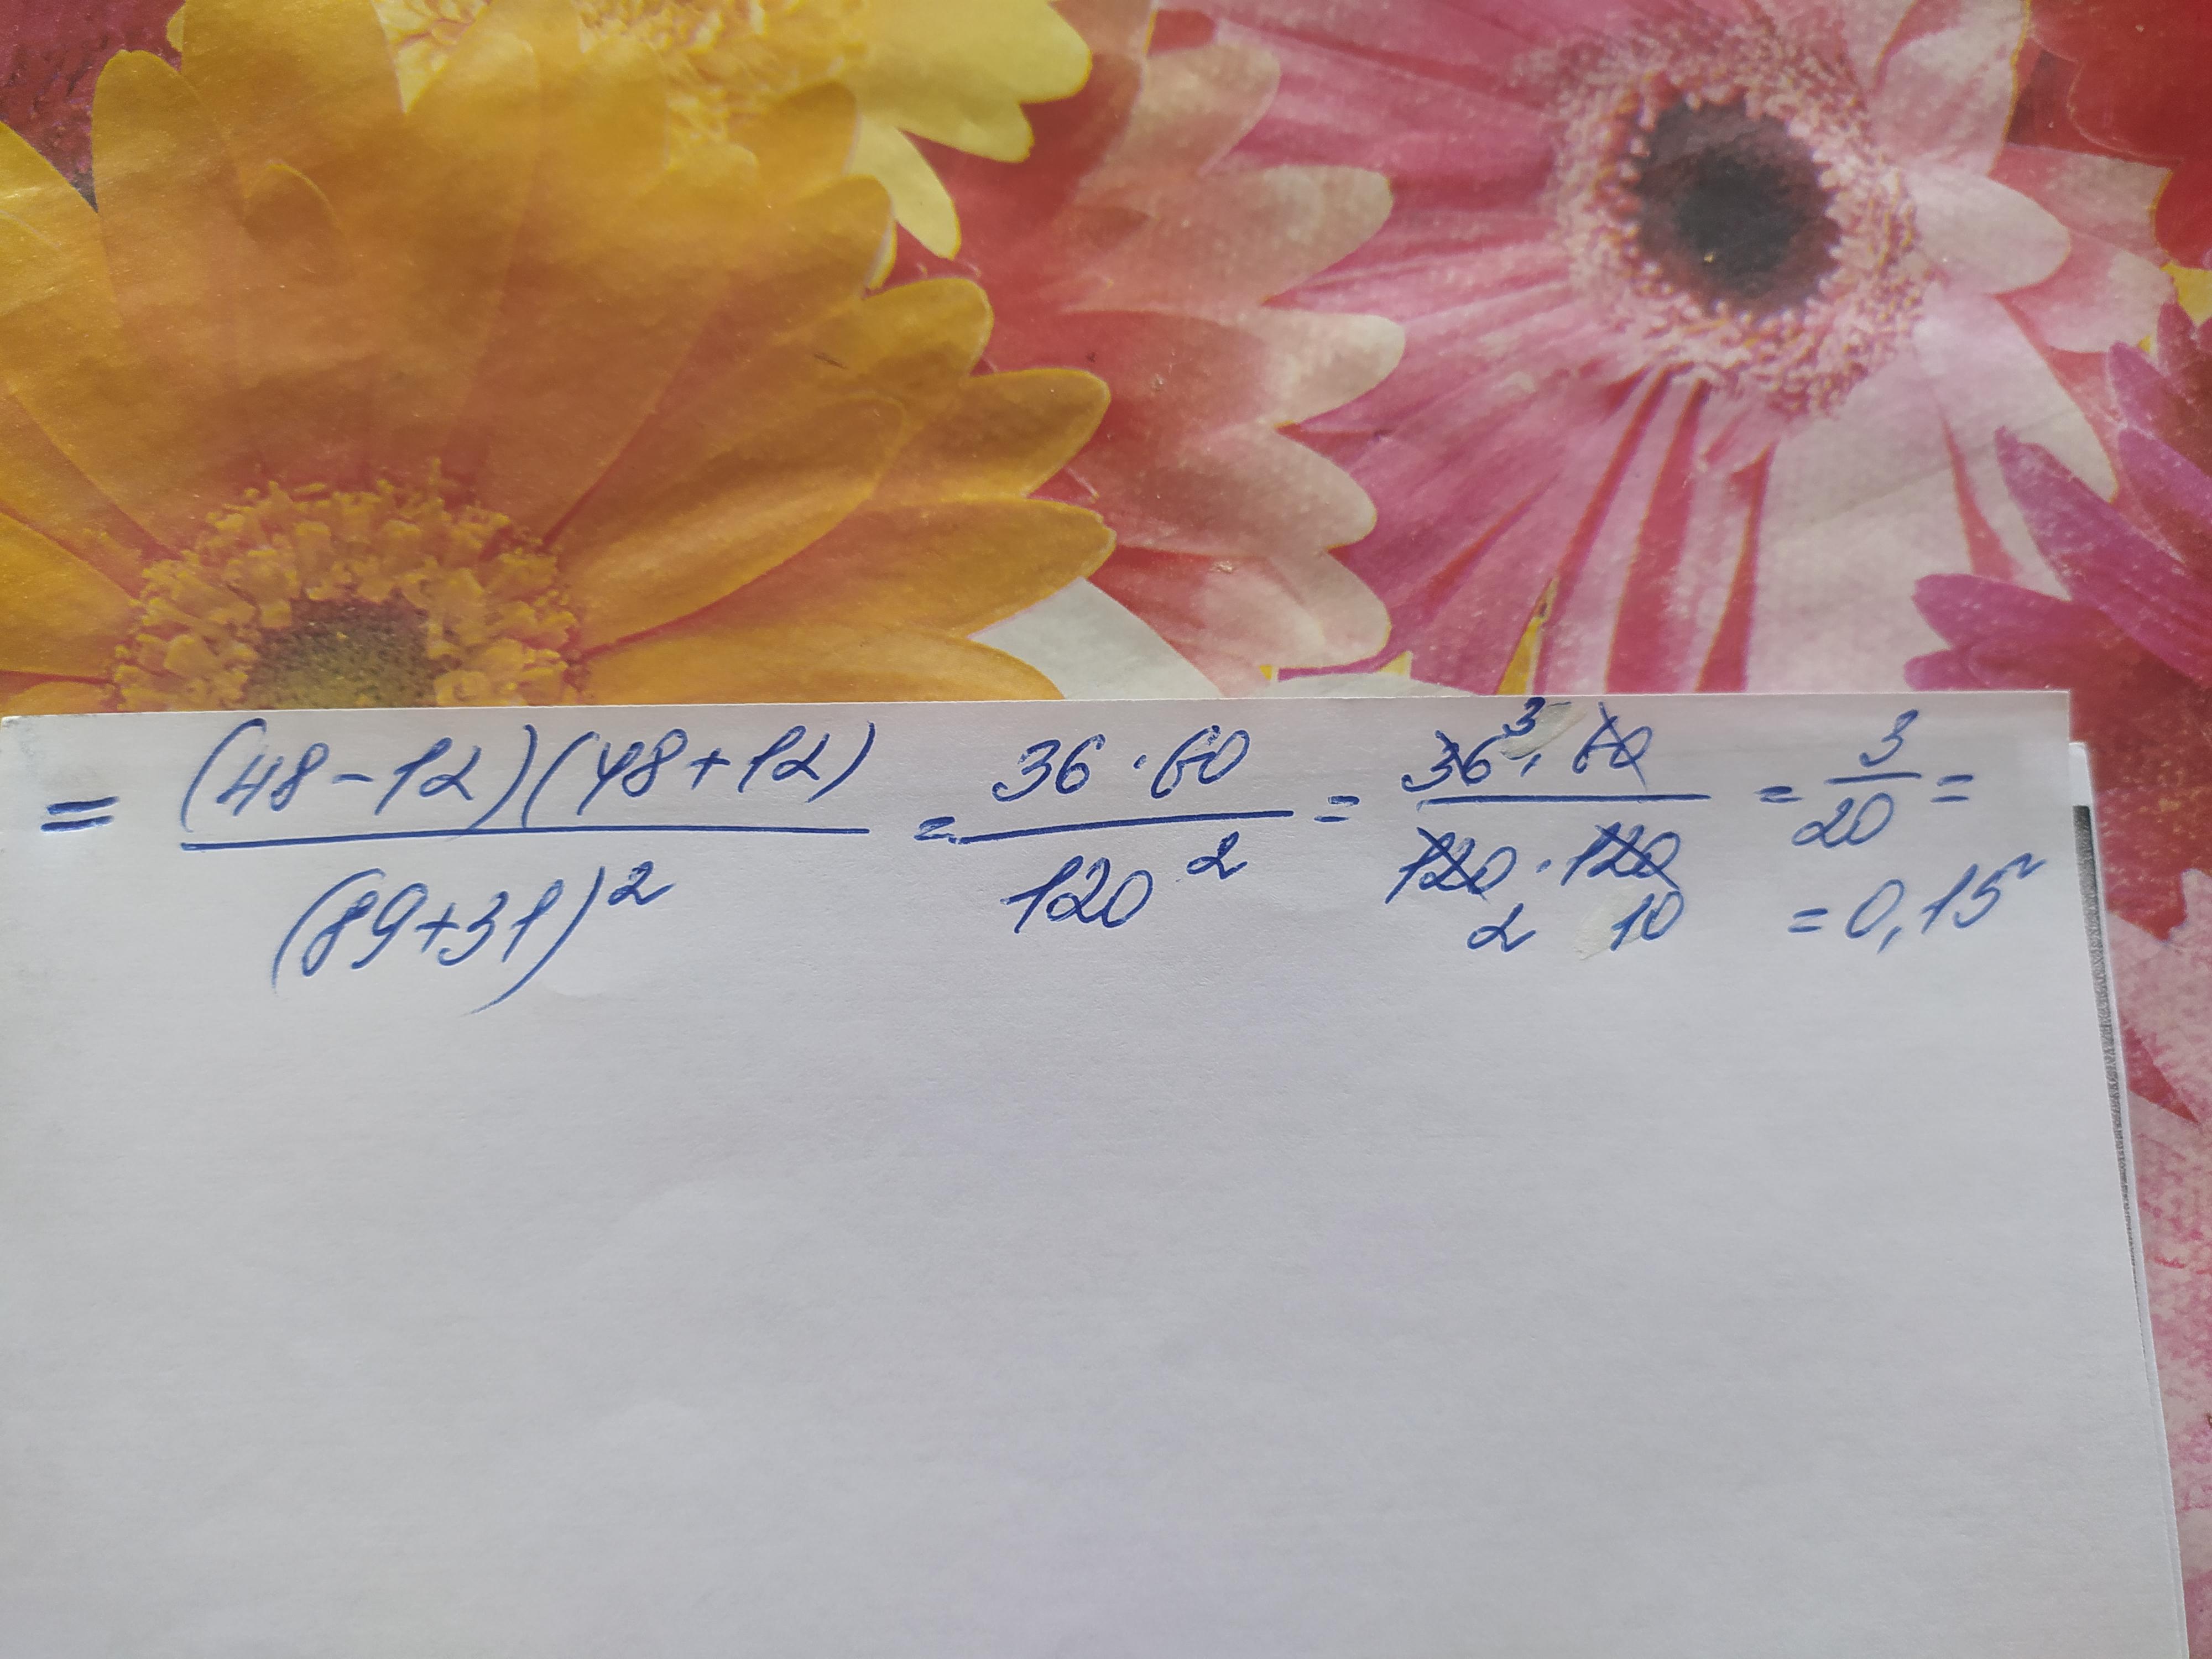 = (48-12)(48+12) / (89+31)² = 36·60 / 120² = 36³·60 / 120·120 = 3/20 =
2 10 = 0,15